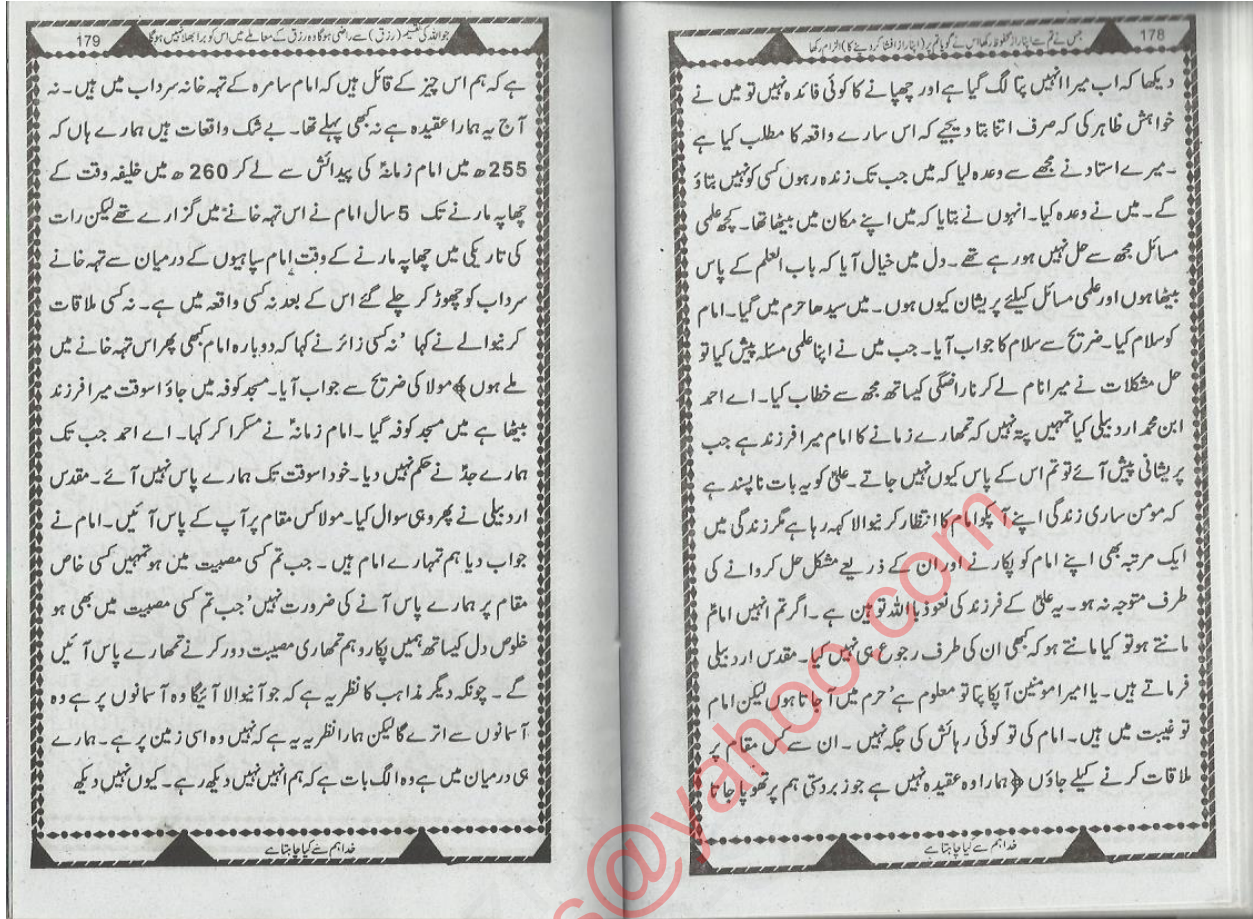 178
جس نے تم سے اپنا راز محفوظ رکھا اس نے گویا تم پر (اپنا راز افشا کر دینے کا) الزام رکھا
دیکھا کہ اب میرا انہیں پتا لگ گیا ہے اور چھپانے کا کوئی فائدہ نہیں تو میں نے
خواہش ظاہر کی کہ صرف اتنا بتا دیجیے کہ اس سارے واقعہ کا مطلب کیا ہے
۔ میرے استاد نے مجھے سے وعدہ لیا کہ میں جب تک زندہ رہوں کسی کو نہیں بتاؤ
گے۔ میں نے وعدہ کیا۔ انہوں نے بتایا کہ میں اپنے مکان میں بیٹھا تھا۔ کچھ علمی
مسائل مجھ سے حل نہیں ہو رہے تھے۔ دل میں خیال آیا کہ باب العلم کے پاس
بیٹھا ہوں اور علمی مسائل کیلئے پریشان کیوں ہوں۔ میں سیدھا حرم میں گیا۔ امام
کو سلام کیا۔ ضریح سے سلام کا جواب آیا۔ جب میں نے اپنا علمی مسئلہ پیش کیا تو
حل مشکلات نے میرا نام لے کر ناراضگی کیساتھ مجھ سے خطاب کیا۔ اے احمد
ابن محمد اردبیلی کیا تمہیں پتہ نہیں کہ تمھارے زمانے کا امام میرا فرزند ہے جب
پریشانی پیش آئے تو تم اس کے پاس کیوں نہیں جاتے۔ علیؑ کو یہ بات ناپسند ہے
کہ مومن ساری زندگی اپنے آپکو امام کا انتظار کرنیوالا کہہ رہا ہے مگر زندگی میں
ایک مرتبہ بھی اپنے امام کو پکارنے اور ان کے ذریعے مشکل حل کروانے کی
طرف متوجہ نہ ہو۔ یہ علیؑ کے فرزند کی نعوذ باللہ توہین ہے۔ اگر تم انہیں امامؑ
مانتے ہو تو کیا مانتے ہو کہ کبھی ان کی طرف رجوع ہی نہیں کیا۔ مقدس اردبیلی
فرماتے ہیں۔ یا امیرا مومنین آپکا پتا تو معلوم ہے' حرم میں آ جاتا ہوں لیکن امام
تو غیبت میں ہیں۔ امام کی تو کوئی رہائش کی جگہ نہیں۔ ان سے کس مقام پر
ملاقات کرنے کیلے جاؤں ﴿ہمارا وہ عقیدہ نہیں ہے جو زبردستی ہم پر تھوپا جاتا
خدا ہم سے کیا چاہتا ہے
179
جو اللہ کی تقسیم (رزق) سے راضی ہوگا وہ رزق کے معاملے میں اس کو برا بھلا نہیں ہوگا
ہے کہ ہم اس چیز کے قائل ہیں کہ امام سامرہ کے تہہ خانہ سرداب میں ہیں۔ نہ
آج یہ ہمارا عقیدہ ہے نہ کبھی پہلے تھا۔ بے شک واقعات ہیں ہمارے ہاں کہ
255ھ میں امام زمانہؑ کی پیدائش سے لے کر 260 ھ میں خلیفہ وقت کے
چھاپہ مارنے تک 5 سال امام نے اس تہہ خانے میں گزارے تھے لیکن رات
کی تاریکی میں چھاپہ مارنے کے وقت امام سپاہیوں کے درمیان سے تہہ خانے
سرداب کو چھوڑ کر چلے گئے اس کے بعد نہ کسی واقعہ میں ہے۔ نہ کسی ملاقات
کرنیوالے نے کہا ' نہ کسی زائر نے کہا کہ دوبارہ امام کبھی پھر اس تہہ خانے میں
ملے ہوں﴾ مولا کی ضریح سے جواب آیا۔ مسجد کوفہ میں جاؤ اسوقت میرا فرزند
بیٹھا ہے میں مسجد کوفہ گیا۔ امام زمانہؑ نے مسکرا کر کہا۔ اے احمد جب تک
ہمارے جدؑ نے حکم نہیں دیا۔ خود اسوقت تک ہمارے پاس نہیں آئے۔ مقدس
اردبیلی نے پھر وہی سوال کیا۔ مولا کس مقام پر آپ کے پاس آئیں۔ امام نے
جواب دیا ہم تمہارے امام ہیں۔ جب تم کسی مصیبت میں ہو تمہیں کسی خاص
مقام پر ہمارے پاس آنے کی ضرورت نہیں' جب تم کسی مصیبت میں بھی ہو
خلوص دل کیساتھ ہمیں پکارو ہم تمھاری مصیبت دور کرنے تمھارے پاس آئیں
گے۔ چونکہ دیگر مذاہب کا نظریہ ہے کہ جو آنیوالا آئیگا وہ آسمانوں پر ہے وہ
آسمانوں سے اترے گا لیکن ہمارا نظریہ یہ ہے کہ نہیں وہ اسی زمین پر ہے۔ ہمارے
ہی درمیان میں ہے وہ الگ بات ہے کہ ہم انہیں نہیں دیکھ رہے۔ کیوں نہیں دیکھ
خدا ہم سے کیا چاہتا ہے
s@yahoo.com